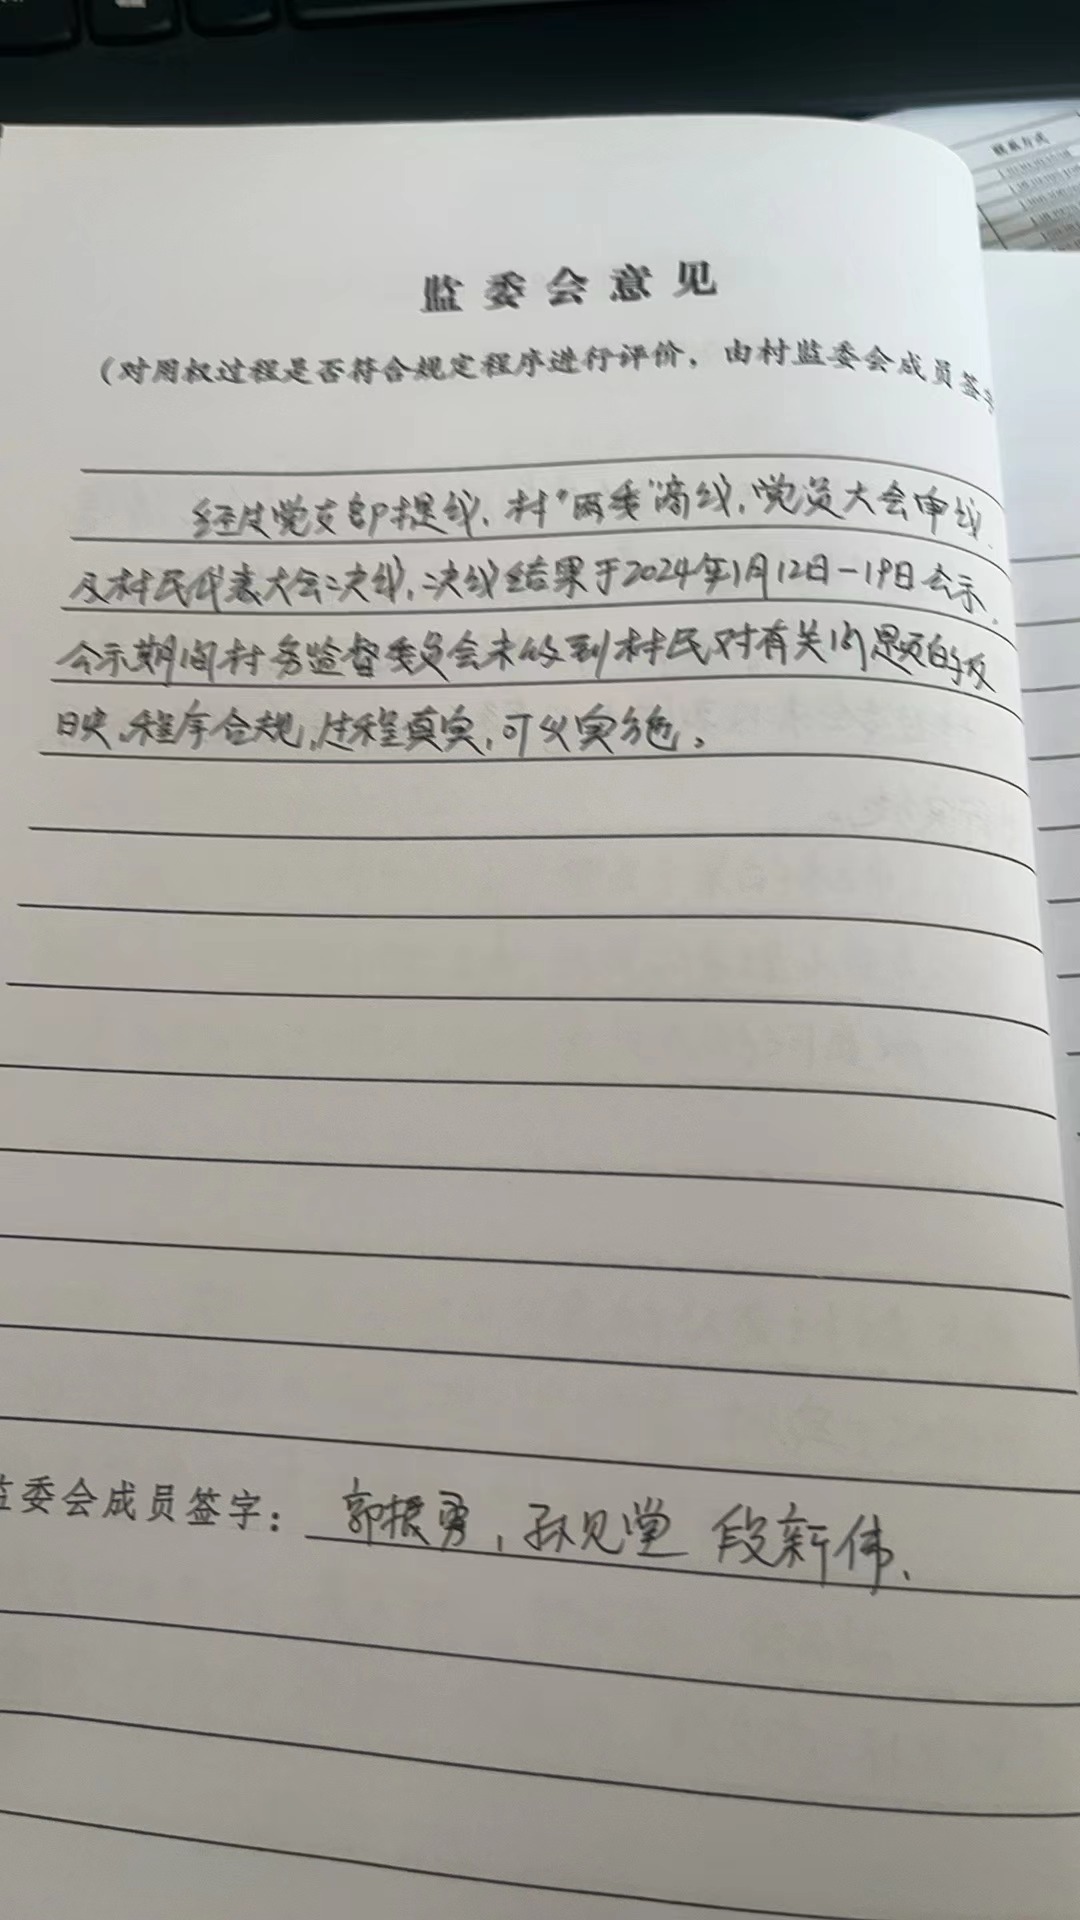 联系方式
监委会意见
（对用权过程是否符合规定程序进行评价，由村监委会成员签字
经过党支部提议，村“两委”商议，党员大会审议
及村民代表大会决议，决议结果于2024年1月12日-19日公示，
公示期间村务监督委员会未收到村民对有关问题的反
映，程序合规，过程真实，可以实施。
监委会成员签字：郭振勇，孙见堂 段新伟，